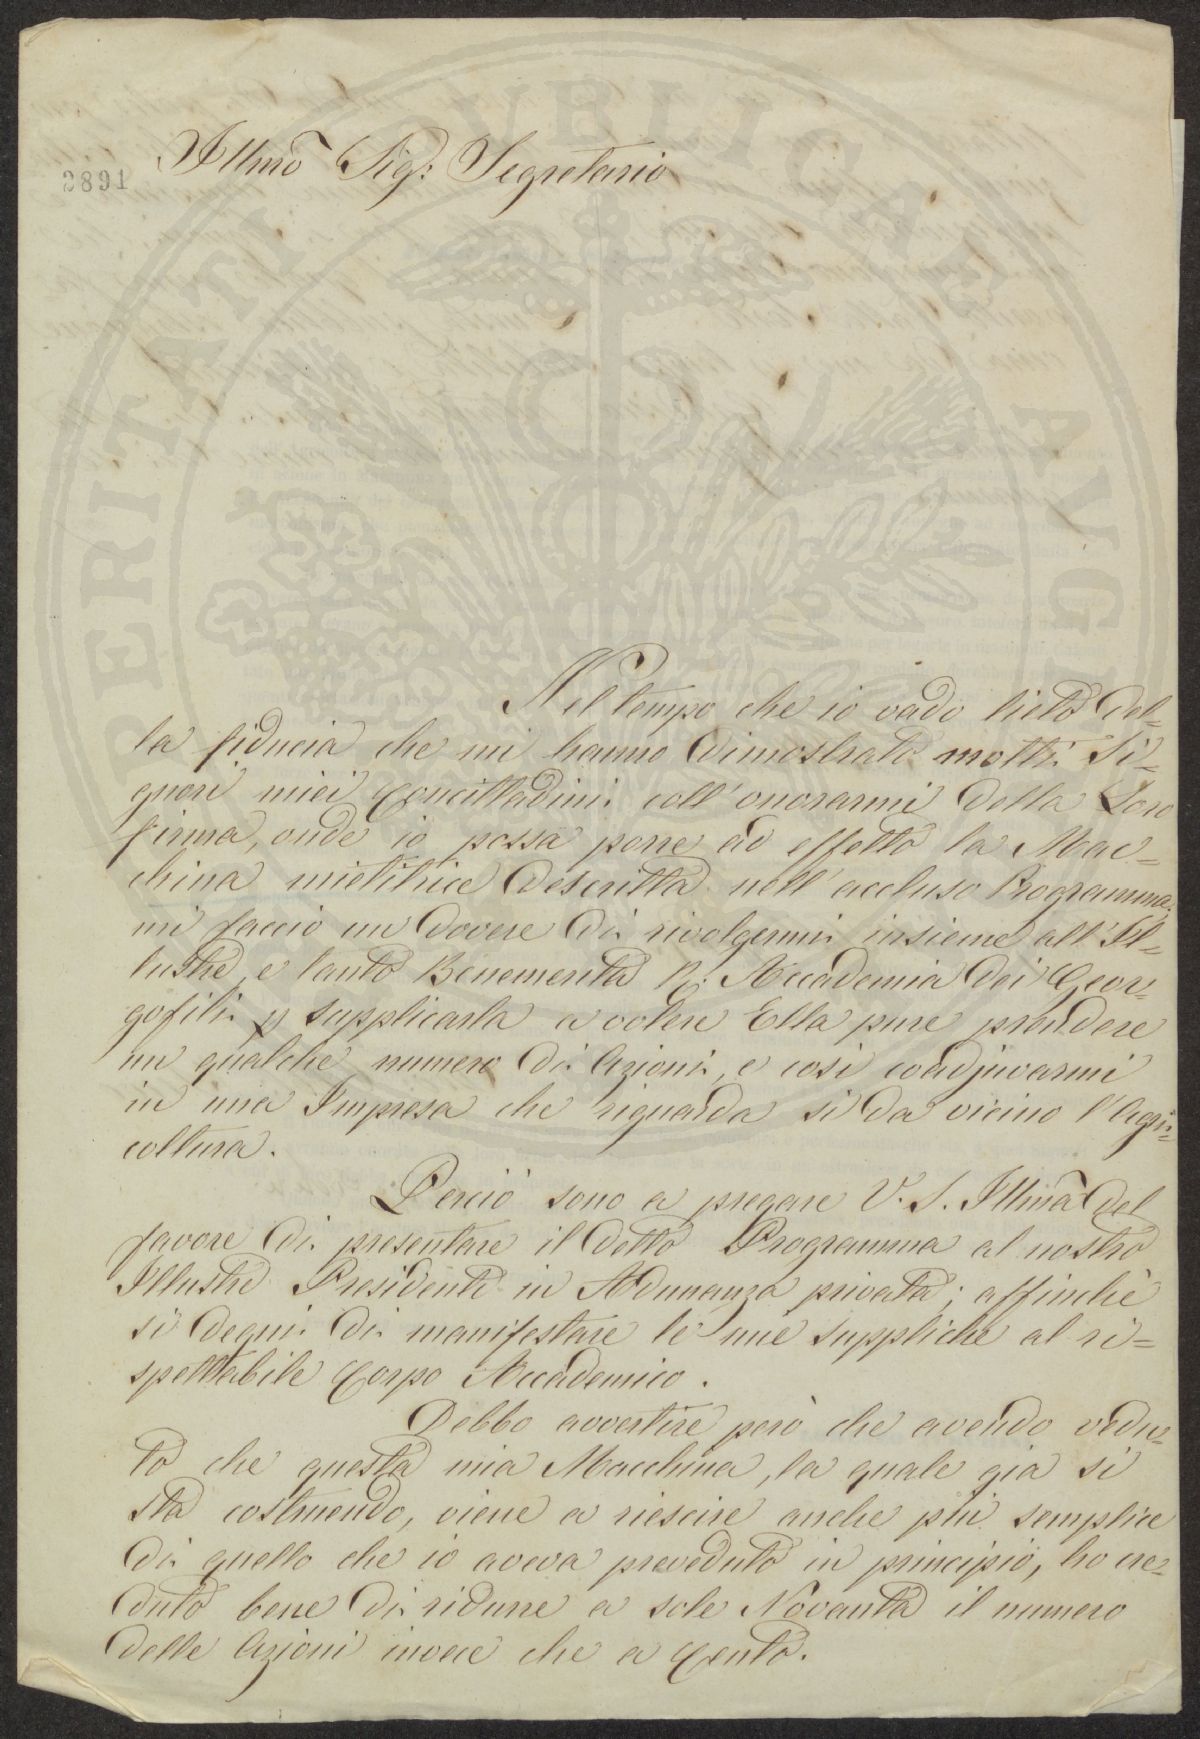 Illmo Sig: Segretario
2891
Nel tempo che io vado lieto del=
la fiducia che mi hanno dimostrato molti Si=
gnori miei Concittadini coll'onorarmi della Loro
firma, onde io possa porre ad effetto la Mac=
china mietitrice descritta nell'accluso Programma,
mi faccio un dovere di rivolgermi insieme all'Il=
lustre, e tanto Benemerita R: Accademia dei Geor=
gofili p supplicarla a volere Ella pure prendere
un qualche numero di Azioni, e così coadjuvarmi
in una Impresa che riguarda sì da vicino l'Agri=
coltura.
Perciò sono a pregare V. S. Illma del
favore di presentare il detto Programma al nostro
Illustre Presidente in Adunanza privata; affinchè
si degni di manifestare le mie suppliche al ri=
spettabile Corpo Accademico.
Debbo avvertire però che avendo vedu=
to che questa mia Macchina, la quale già si
sta costruendo, viene a riescire anche più semplice
di quello che io aveva preveduto in principio, ho cre=
duto bene di ridurre a sole Novanta il numero
delle Azioni invece che a Cento.
PERITATI PVBLICAE AVG